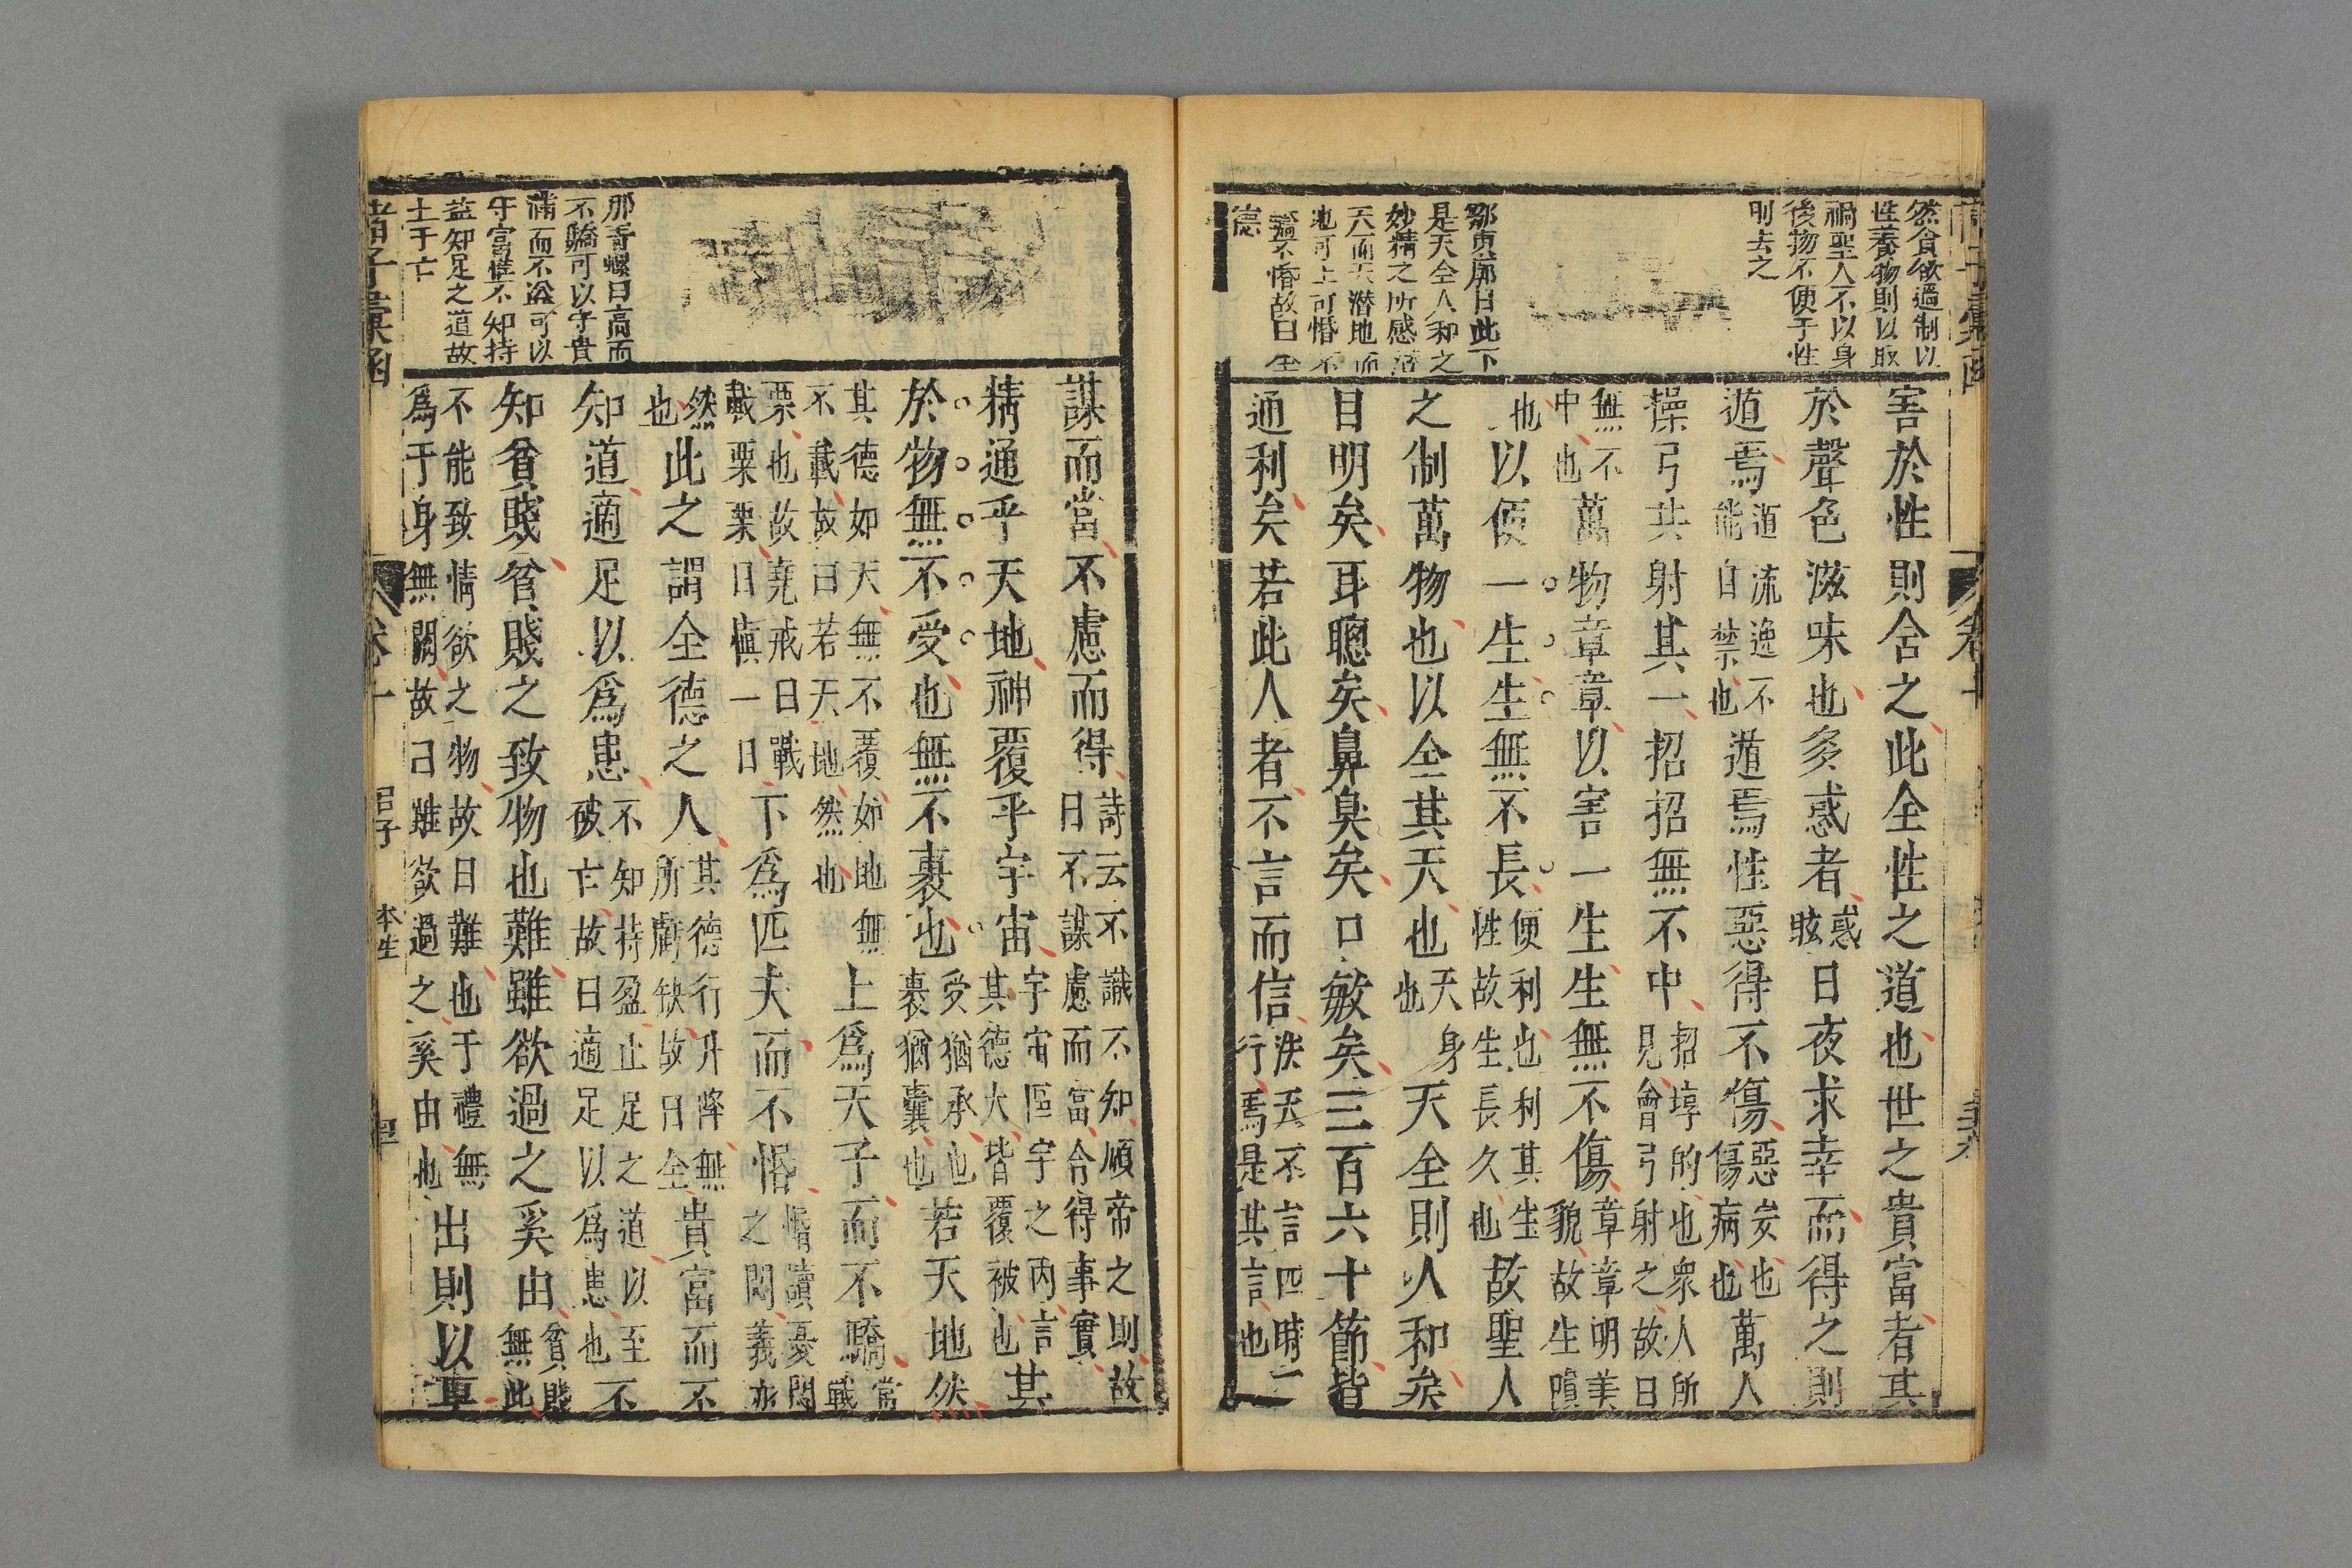 然食欲過制以
性養物則以取
禍聖人不以身
後物不便于性
則去之
鄒東廓曰此下
是天全人和之
妙精之所感潛
天而天潛地而
地可上可惛不
驕不惛故曰全
德
害於性則舍之此全性之道也世之貴富者其
於聲色滋味也多惑者惑眩日夜求幸而得之則
遁焉遁流逸不能自禁也遁焉性惡得不傷惡安也傷病也萬人
操弓共射其一招招無不中招埻的也衆人所見會弓射之故曰
無不中也萬物章章以害一生生無不傷章章明美貌故生隕
也以便一生生無不長便利也利其生性故生長久也故聖人
之制萬物也以全其天也天身也天全則人和矣
目明矣耳聰矣鼻臭矣口敏矣三百六十節皆
通利矣若此人者不言而信法天不言四時行焉是其言也
謀而當不慮而得詩云不識不知順帝之則故曰不謀慮而當合得事實
精通乎天地神覆乎宇宙宇宙區宇之內言其德大皆覆被也其
於物無不受也無不裹也受猶承也裹猶囊也若天地然
其德如天無不覆如地無不載故曰若天地然也上爲天子而不驕常戰
栗也故堯戒曰戰戰栗栗日慎一日下爲匹夫而不惛惛讀憂悶之悶義亦
然也此之謂全德之人其德行升降無所虧缺故曰全貴富而不
知道適足以爲患不知持盈止足之道以至破亡故曰適足以爲患也不
知貧賤貧賤之致物也難雖欲過之奚由貧賤無此
不能致情欲之物故曰難也于禮無爲于身無闕故曰雖欲過之奚由也出則以車
那青螺曰高而
不驕可以守貴
滿而不溢可以
守富惟不知持
益知足之道故
土于亡
諸子彙函
卷十
呂子
本生